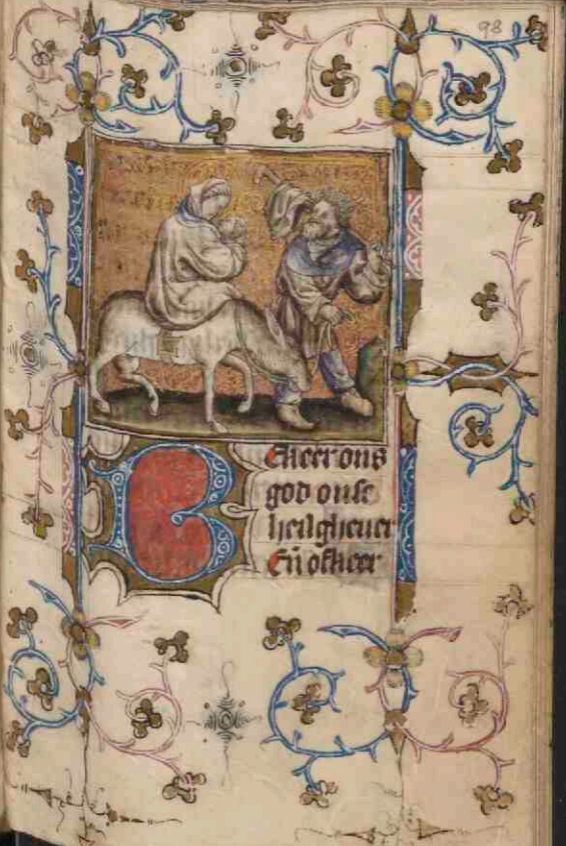 98
BEkeer ons
god onse
heilgheuer
Eñ ofkeer